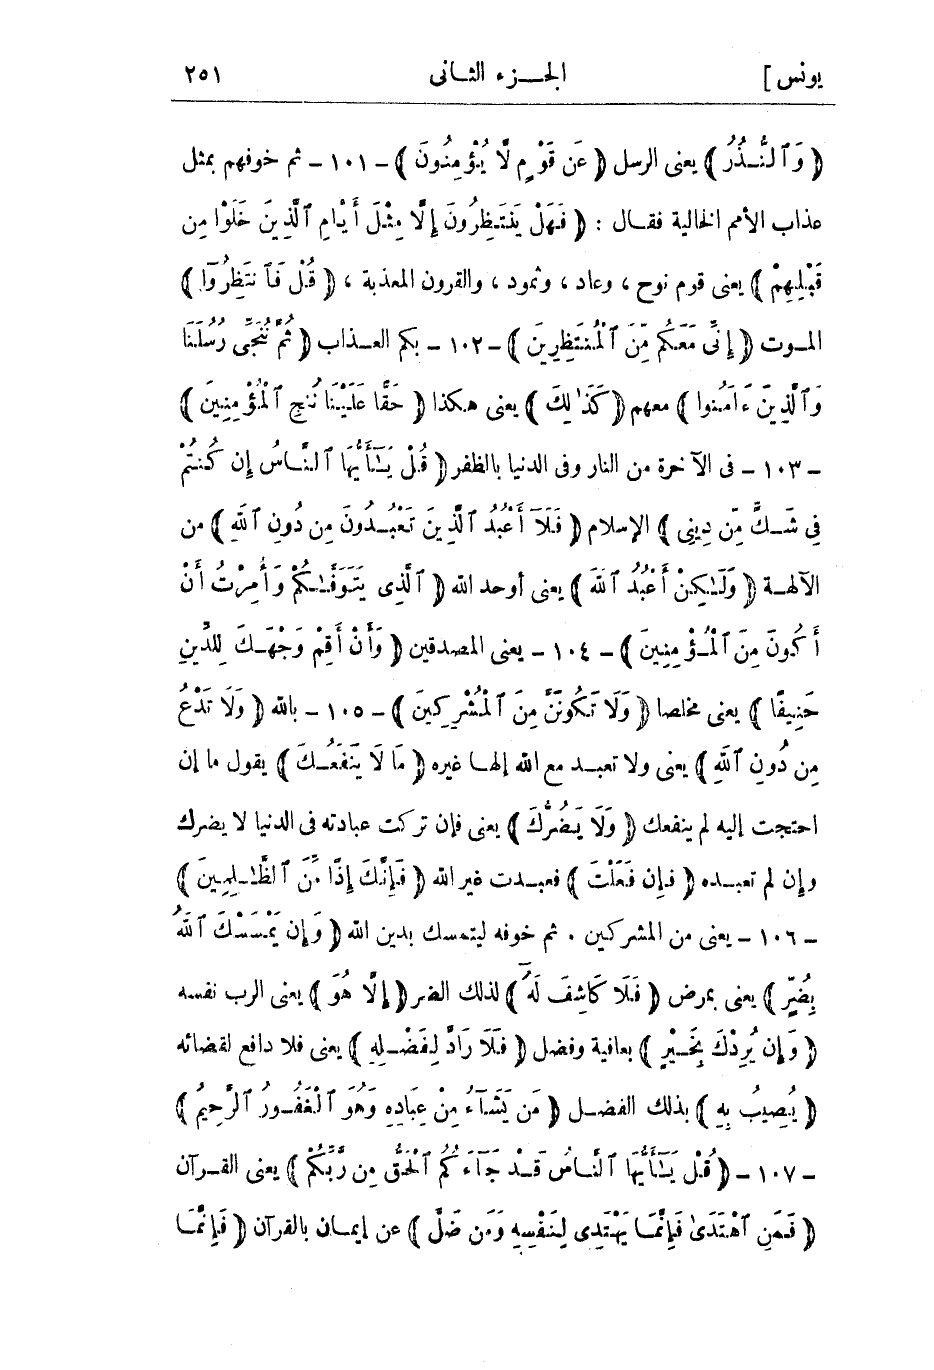 يونس ] الجـــزء الثـانى ٢٥١
﴿ وَٱلنُّـذُرُ ﴾ يعنى الرسل ﴿ عَن قَوْمٍ لَّا يُؤْمِنُونَ ﴾ - ١٠١ - ثم خوفهم بمثل
عذاب الأمم الخالية فقـال : ﴿ فَهَلْ يَنتَظِرُونَ إِلَّا مِثْلَ أَيَّامِ ٱلَّذِينَ خَلَوْا مِن
قَبْلِهِمْ ﴾ يعنى قوم نوح ، وعاد ، وثمود ، والقرون المعذبة ، ﴿ قُلْ فَٱنتَظِرُوٓا ﴾
المـوت ﴿ إِنِّى مَعَكُم مِّنَ ٱلْمُنتَظِرِينَ ﴾ - ١٠٢ - بكم العـذاب ﴿ ثُمَّ نُنَجِّى رُسُلَنَا
وَٱلَّذِينَ ءَامَنُوا ﴾ معهم ﴿ كَذَٰلِكَ ﴾ يعنى هكذا ﴿ حَقًّا عَلَيْنَا نُنجِ ٱلْمُؤْمِنِينَ ﴾
- ١٠٣ - فى الآخرة من النار وفى الدنيا بالظفر ﴿ قُلْ يَٰٓأَيُّهَا ٱلنَّاسُ إِن كُنتُمْ
فِى شَـكٍّ مِّن دِينِى ﴾ الإسلام ﴿ فَلَآ أَعْبُدُ ٱلَّذِينَ تَعْبُـدُونَ مِن دُونِ ٱللَّهِ ﴾ من
الآلهـة ﴿ وَلَٰكِنْ أَعْبُدُ ٱللَّهَ ﴾ يعنى أوحد الله ﴿ ٱلَّذِى يَتَوَفَّىٰكُمْ وَأُمِرْتُ أَنْ
أَكُونَ مِنَ ٱلْمُـؤْمِنِينَ ﴾ - ١٠٤ - يعنى المصدقين ﴿ وَأَنْ أَقِمْ وَجْهَـكَ لِلدِّينِ
حَنِيفًا ﴾ يعنى مخلصا ﴿ وَلَا تَكُونَنَّ مِنَ ٱلْمُشْرِكِينَ ﴾ - ١٠٥ - بالله ﴿ وَلَا تَدْعُ
مِن دُونِ ٱللَّهِ ﴾ يعنى ولا تعبـد مع الله إلهـا غيره ﴿ مَا لَا يَنفَعُـكَ ﴾ يقول ما إن
احتجت إليه لم ينفعك ﴿ وَلَا يَضُرُّكَ ﴾ يعنى فإن تركت عبادته فى الدنيا لا يضرك
وإن لم تعبـده ﴿ فَإِن فَعَلْتَ ﴾ فعبـدت غير الله ﴿ فَإِنَّكَ إِذًا مِّنَ ٱلظَّٰلِمِينَ ﴾
- ١٠٦ - يعنى من المشركين . ثم خوفه ليتمسك بدين الله ﴿ وَإِن يَمْسَسْكَ ٱللَّهُ
بِضُرٍّ ﴾ يعنى بمرض ﴿ فَلَا كَاشِفَ لَهُٓ ﴾ لذلك الضر ﴿ إِلَّا هُوَ ﴾ يعنى الرب نفسه
﴿ وَإِن يُرِدْكَ بِخَـيْرٍ ﴾ بعافية وفضل ﴿ فَلَا رَآدَّ لِفَضْـلِهِ ﴾ يعنى فلا دافع لقضائه
﴿ يُصِيبُ بِهِ ﴾ بذلك الفضـل ﴿ مَن يَشَآءُ مِنْ عِبَادِهِ وَهُوَ ٱلْغَفُـورُ ٱلرَّحِيمُ ﴾
- ١٠٧ - ﴿ قُلْ يَٰٓأَيُّهَا ٱلنَّاسُ قَـدْ جَآءَكُمُ ٱلْحَقُّ مِن رَّبِّكُمْ ﴾ يعنى القـرآن
﴿ فَمَنِ ٱهْتَدَىٰ فَإِنَّمَـا يَهْتَدِى لِنَفْسِهِ وَمَن ضَلَّ ﴾ عن إيمـان بالقرآن ﴿ فَإِنَّمَـا